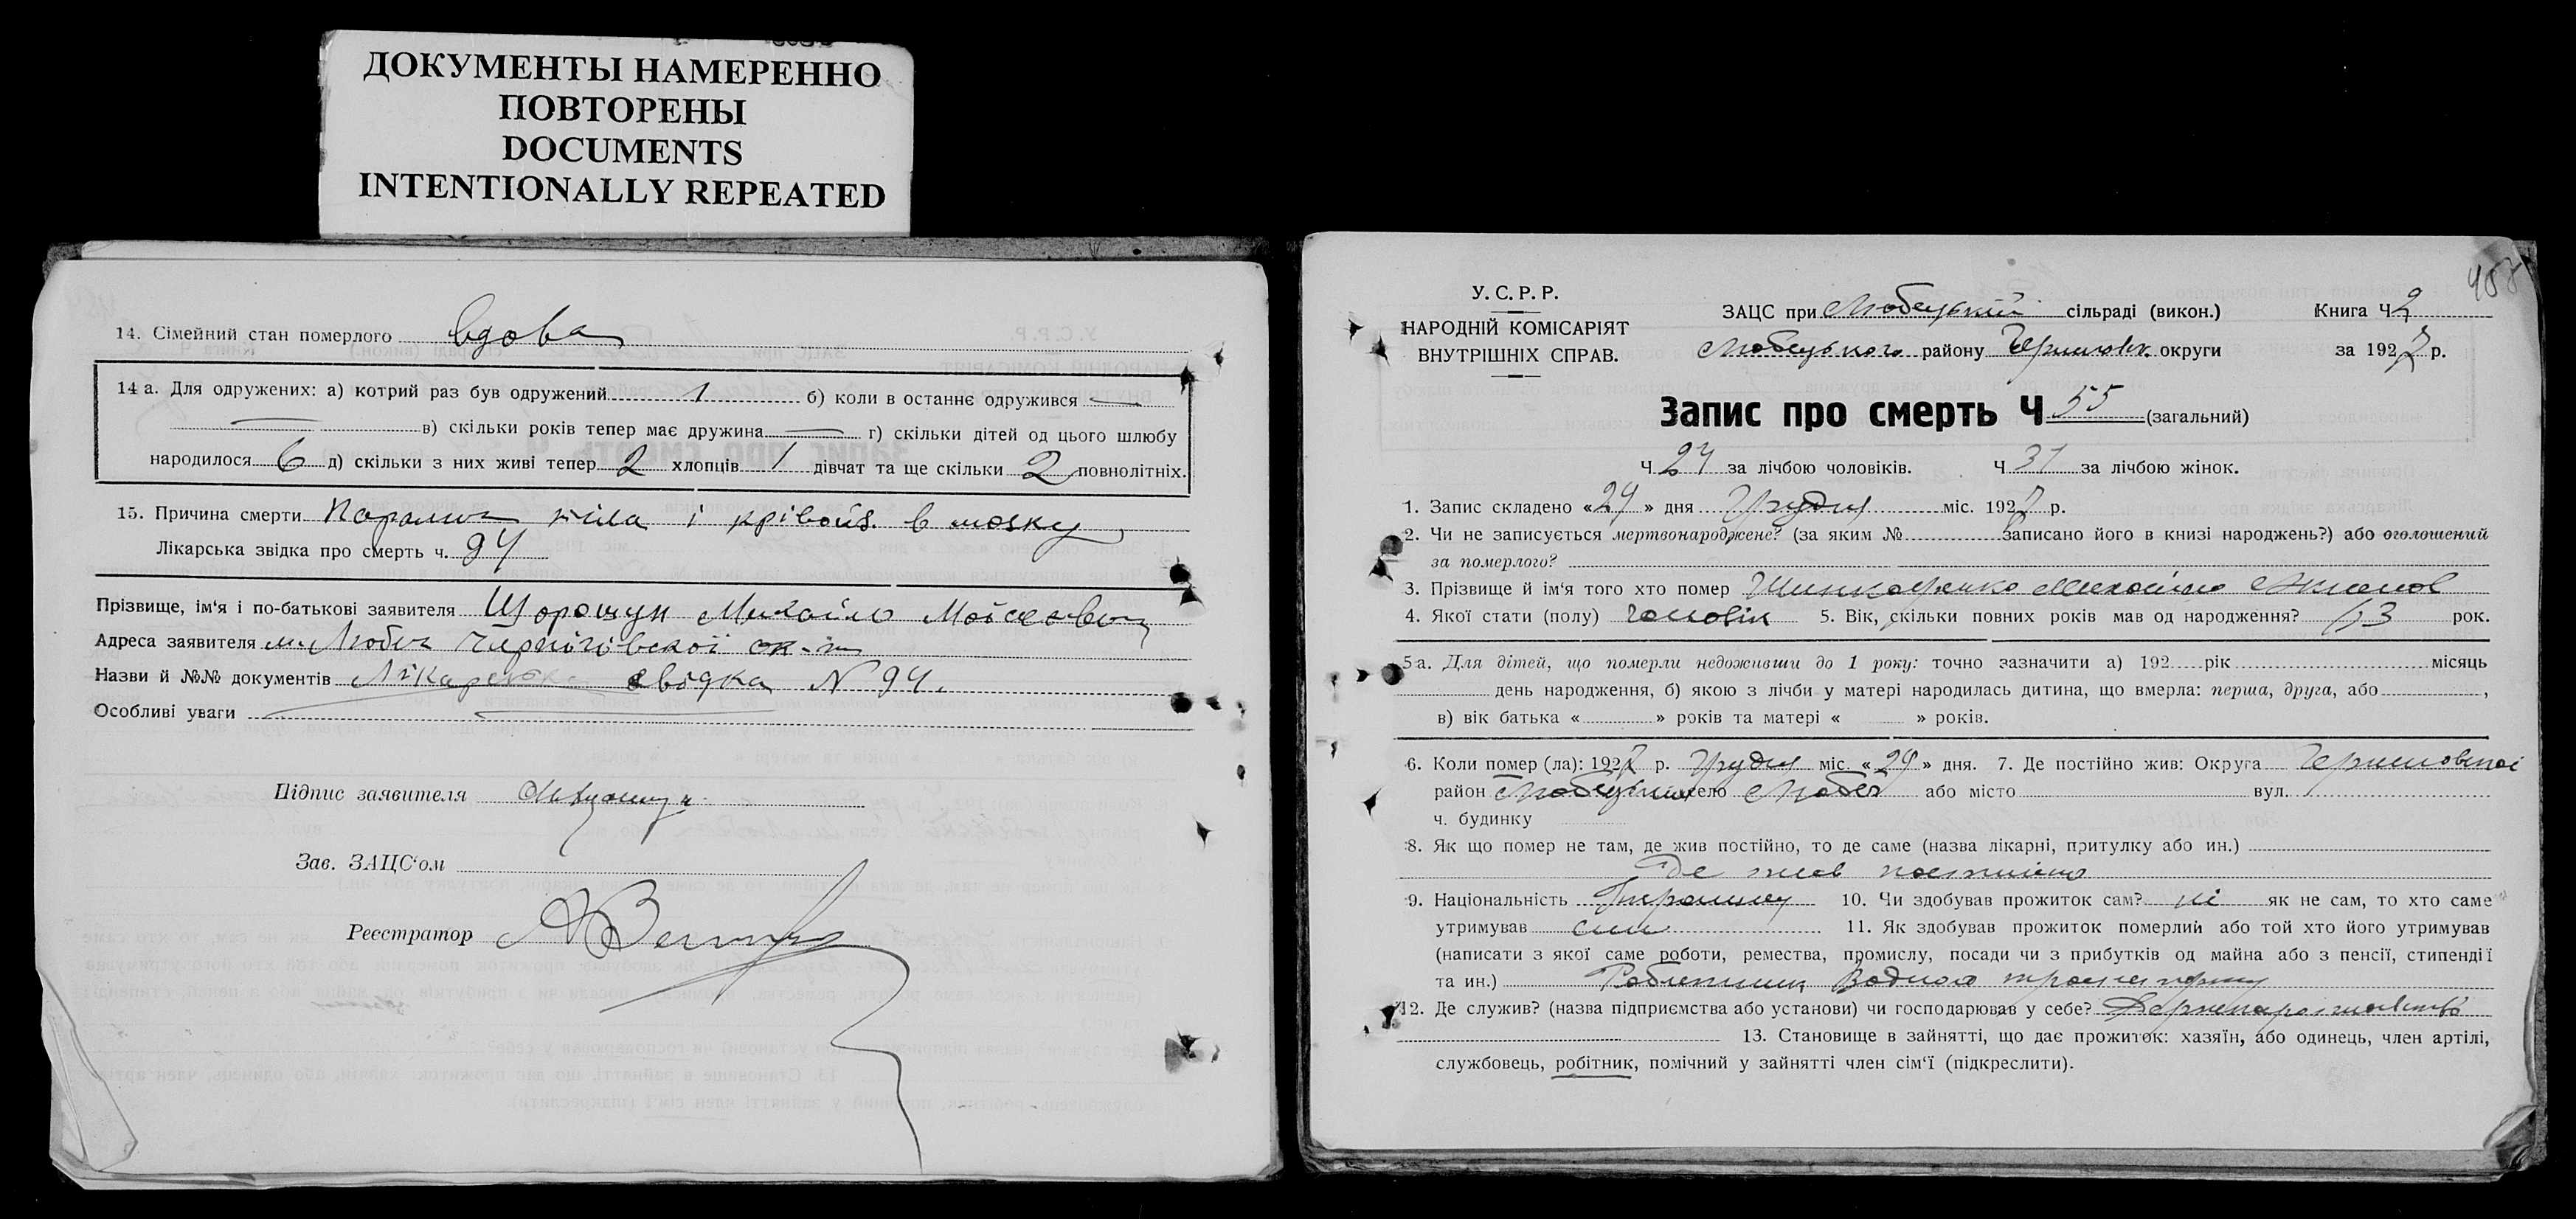 ДОКУМЕНТЫ НАМЕРЕННО
ПОВТОРЕНЫ
DOCUMENTS
INTENTIONALLY REPEATED
14. Сімейний стан померлого вдова
14 а. Для одружених: а) котрий раз був одружений 1 б) коли в останнє одружився —
— в) скільки років тепер має дружина — г) скільки дітей од цього шлюбу
народилося 6 д) скільки з них живі тепер 2 хлопців 1 дівчат та ще скільки 2 повнолітніх.
15. Причина смерти тіла і в мозку
Лікарська звідка про смерть ч. 94
Прізвище, ім'я і по-батькові заявителя Михайло
Адреса заявителя м. Любеч Чернігівської
Назви й №№ документів Лікарська звідка N 94.
Особливі уваги
Підпис заявителя
Зав. ЗАЦС'ом
Реєстратор
458
У. С. Р. Р.
НАРОДНІЙ КОМІСАРІЯТ
ВНУТРІШНІХ СПРАВ.
ЗАЦС при Любецький сільраді (викон.)
Любецького району округи
Книга Ч 2
за 1927 р.
Запис про смерть Ч 55 (загальний)
Ч 24 за лічбою чоловіків. Ч 31 за лічбою жінок.
1. Запис складено «24» дня Грудня міс. 1927 р.
2. Чи не записується мертвонароджене? (за яким № записано його в книзі народжень?) або оголошений
за померлого?
3. Прізвище й ім'я того хто помер
4. Якої стати (полу) чоловік 5. Вік, скільки повних років мав од народження? 63 рок.
5 а. Для дітей, що померли недоживши до 1 року: точно зазначити а) 192 рік місяць
день народження, б) якою з лічби у матері народилась дитина, що вмерла: перша, друга, або ,
в) вік батька « » років та матері « » років.
6. Коли помер (ла): 1927 р. Грудня міс. «24» дня. 7. Де постійно жив: Округа
район село Любеч або місто вул.
ч. будинку
8. Як що помер не там, де жив постійно, то де саме (назва лікарні, притулку або ин.)
Де жив постійно
9. Національність 10. Чи здобував прожиток сам? ні як не сам, то хто саме
утримував син 11. Як здобував прожиток померлий або той хто його утримував
(написати з якої саме роботи, ремества, промислу, посади чи з прибутків од майна або з пенсії, стипендії
та ин.) Робітник Водного транспорту
12. Де служив? (назва підприємства або установи) чи господарював у себе?
13. Становище в зайнятті, що дає прожиток: хазяїн, або одинець, член артілі,
службовець, робітник, помічний у зайнятті член сім'ї (підкреслити).